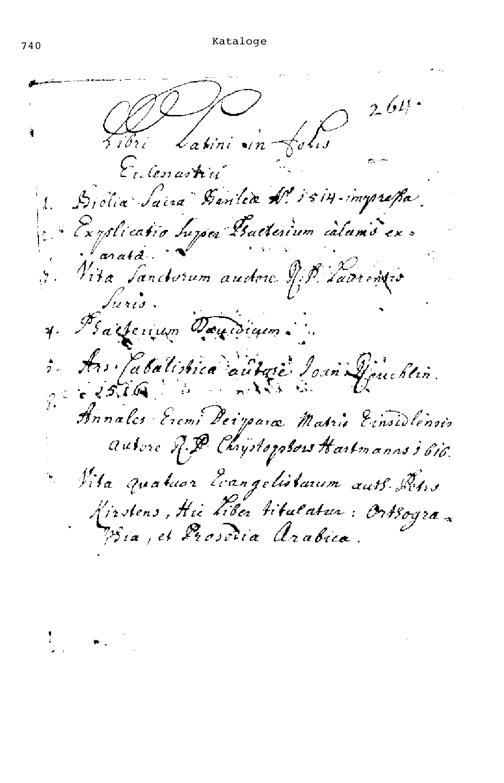 740
Kataloge
264.
Libri Latini in folio
Eclesiastici
1. Biblia Sacra Basileæ Aº. 1514 impressa.
Explicatio super Psalterium calamo ex=
arata
3. Vita Sanctorum autore R. P. Laurentio
Surio.
4. Psalterium Davidicum.
5. Ars Cabalistica autore Joan: Reuchlin.
1516
Annales Eremi Deiparæ Matris Einsidlensis
autore R. P Chrystophoro Hartmanno 1616.
Vita quatuor Evangelistarum auth. Petro
Kirstenio, Hic Liber titulatur: Orthogra=
phia, et Prosodia Arabica.